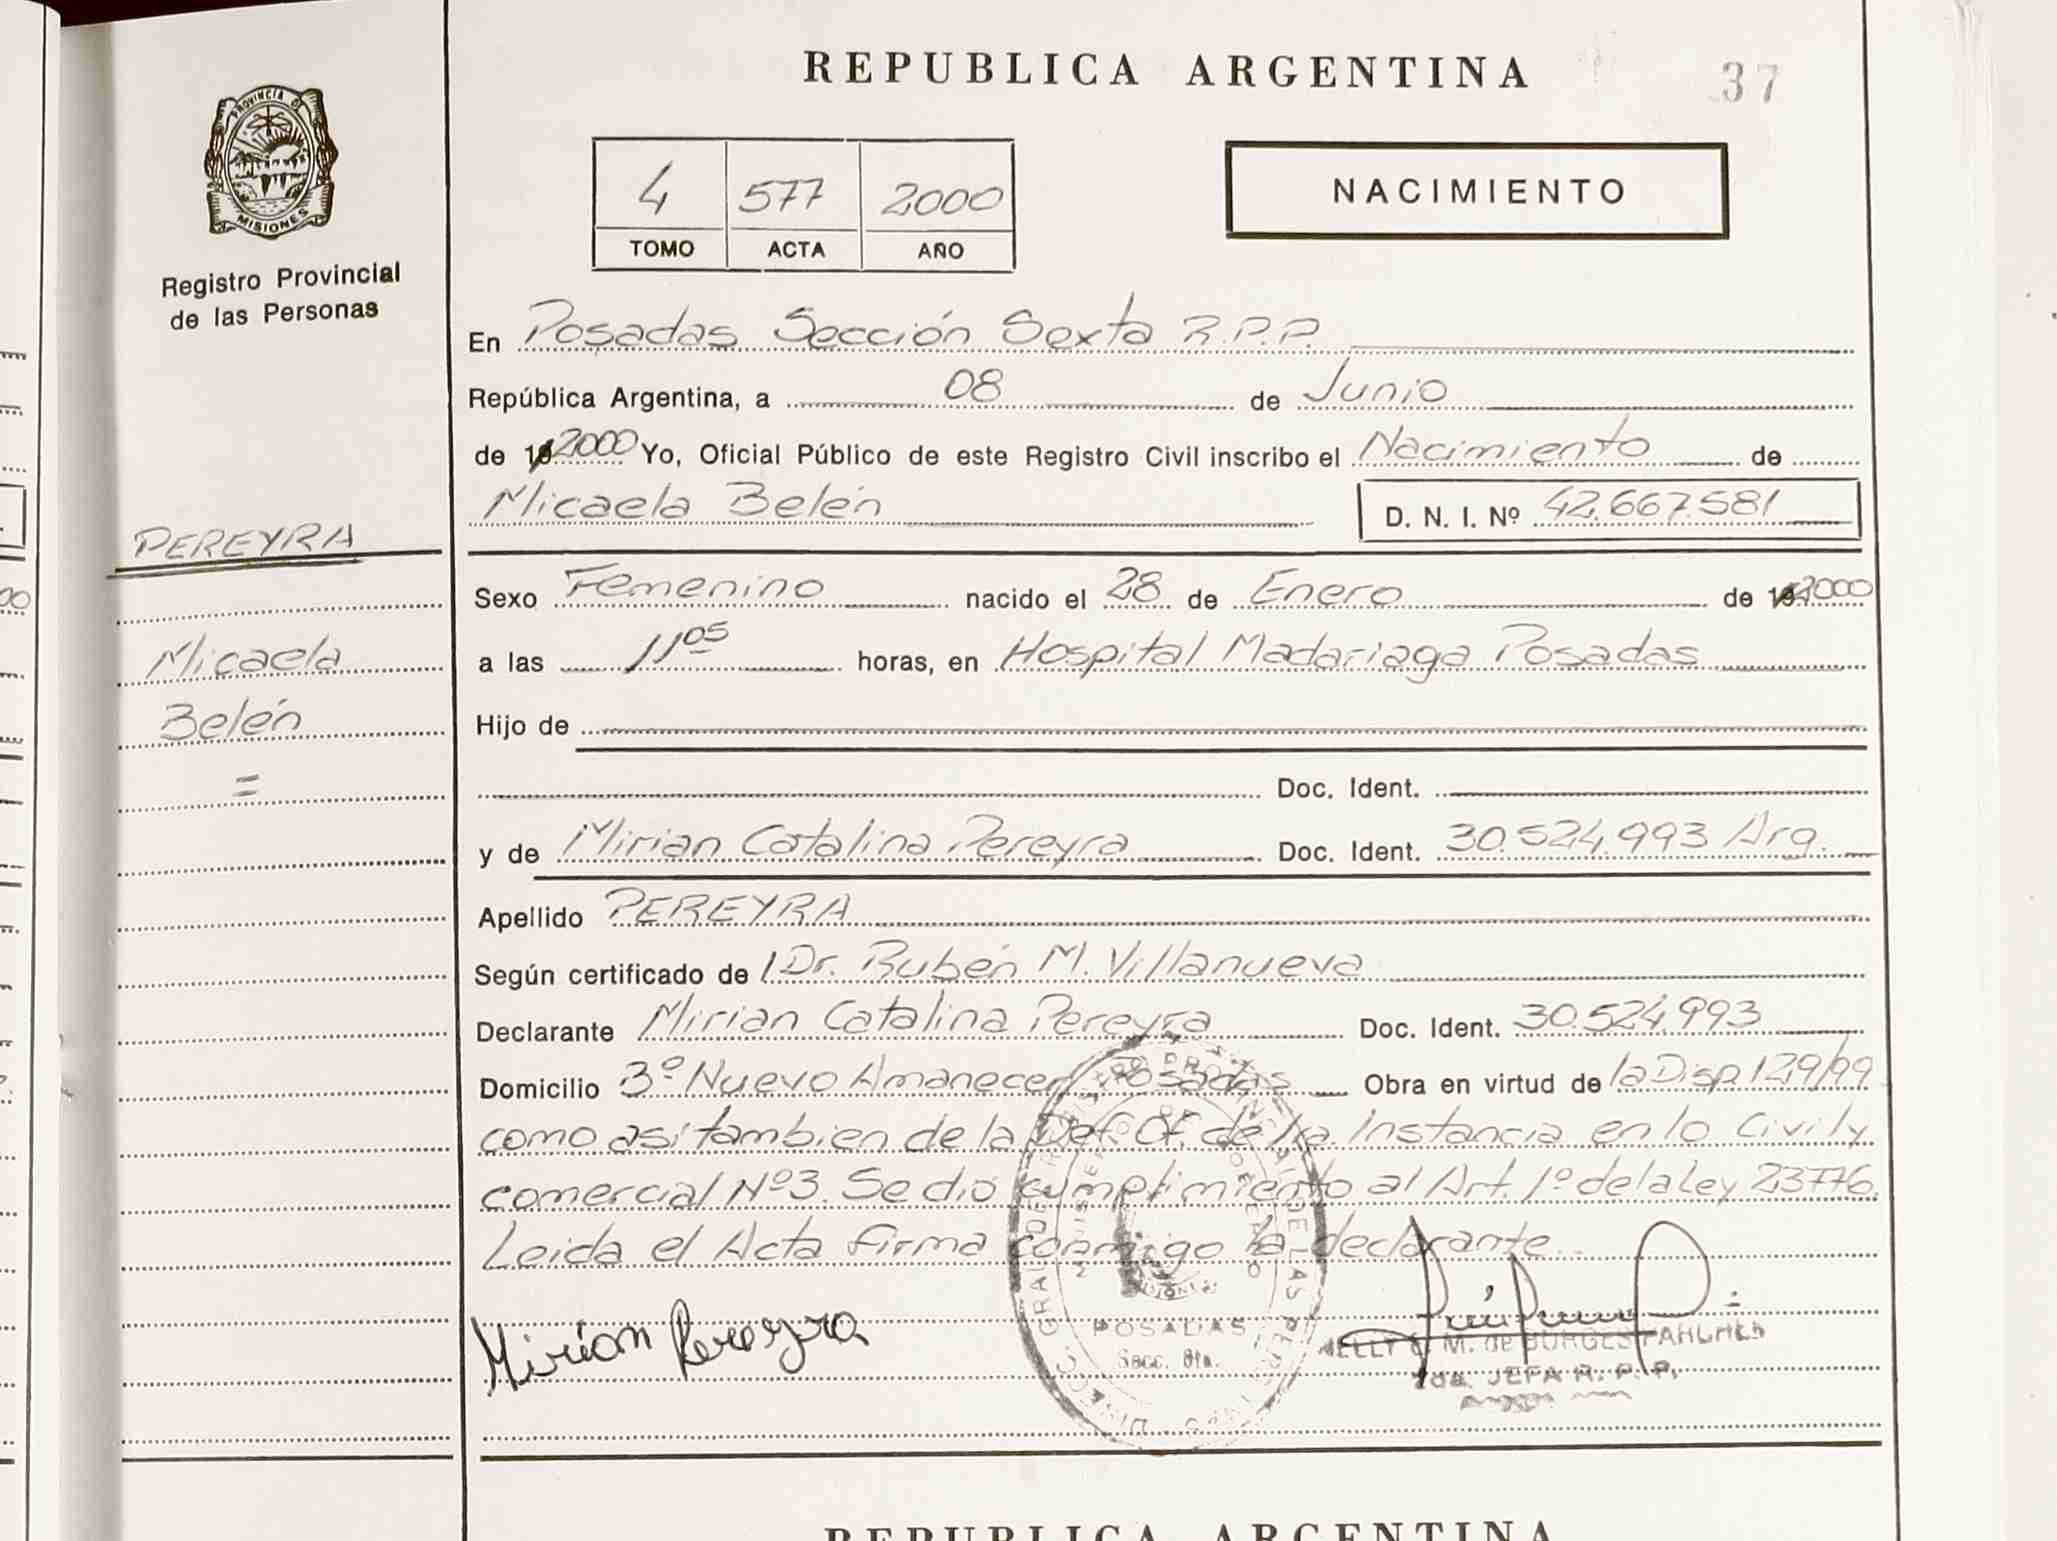 REPUBLICA ARGENTINA
37
PROVINCIA DE
MISIONES
Registro Provincial
de las Personas
4 577 2000
TOMO ACTA AÑO
NACIMIENTO
En Posadas Sección Sexta R.P.P.
República Argentina, a 08 de Junio
de 19 2000 Yo, Oficial Público de este Registro Civil inscribo el Nacimiento de
Micaela Belén D. N. I. Nº 42.667.581
PEREYRA
Micaela
Belén
=
Sexo Femenino nacido el 28 de Enero de 19 2000
a las 11 05 horas, en Hospital Madariaga Posadas
Hijo de
Doc. Ident.
y de Mirian Catalina Pereyra Doc. Ident. 30.524.993 Arg.
Apellido PEREYRA
Según certificado de l Dr. Rubén M. Villanueva
Declarante Mirian Catalina Pereyra Doc. Ident. 30.524.993
Domicilio Bº Nuevo Amanecer Posadas Obra en virtud de la Disp. 129/99
como asi tambien de la Def. Of. de 1ra. Instancia en lo Civil y
comercial Nº3. Se dió cumplimiento al Art. 1º de la Ley 23776.
Leida el Acta firma conmigo la declarante.
Mirian Pereyra
POSADAS
Secc. 6ta.
M. de BURGES
JEFA R. P. P.
REPUBLICA ARGENTINA